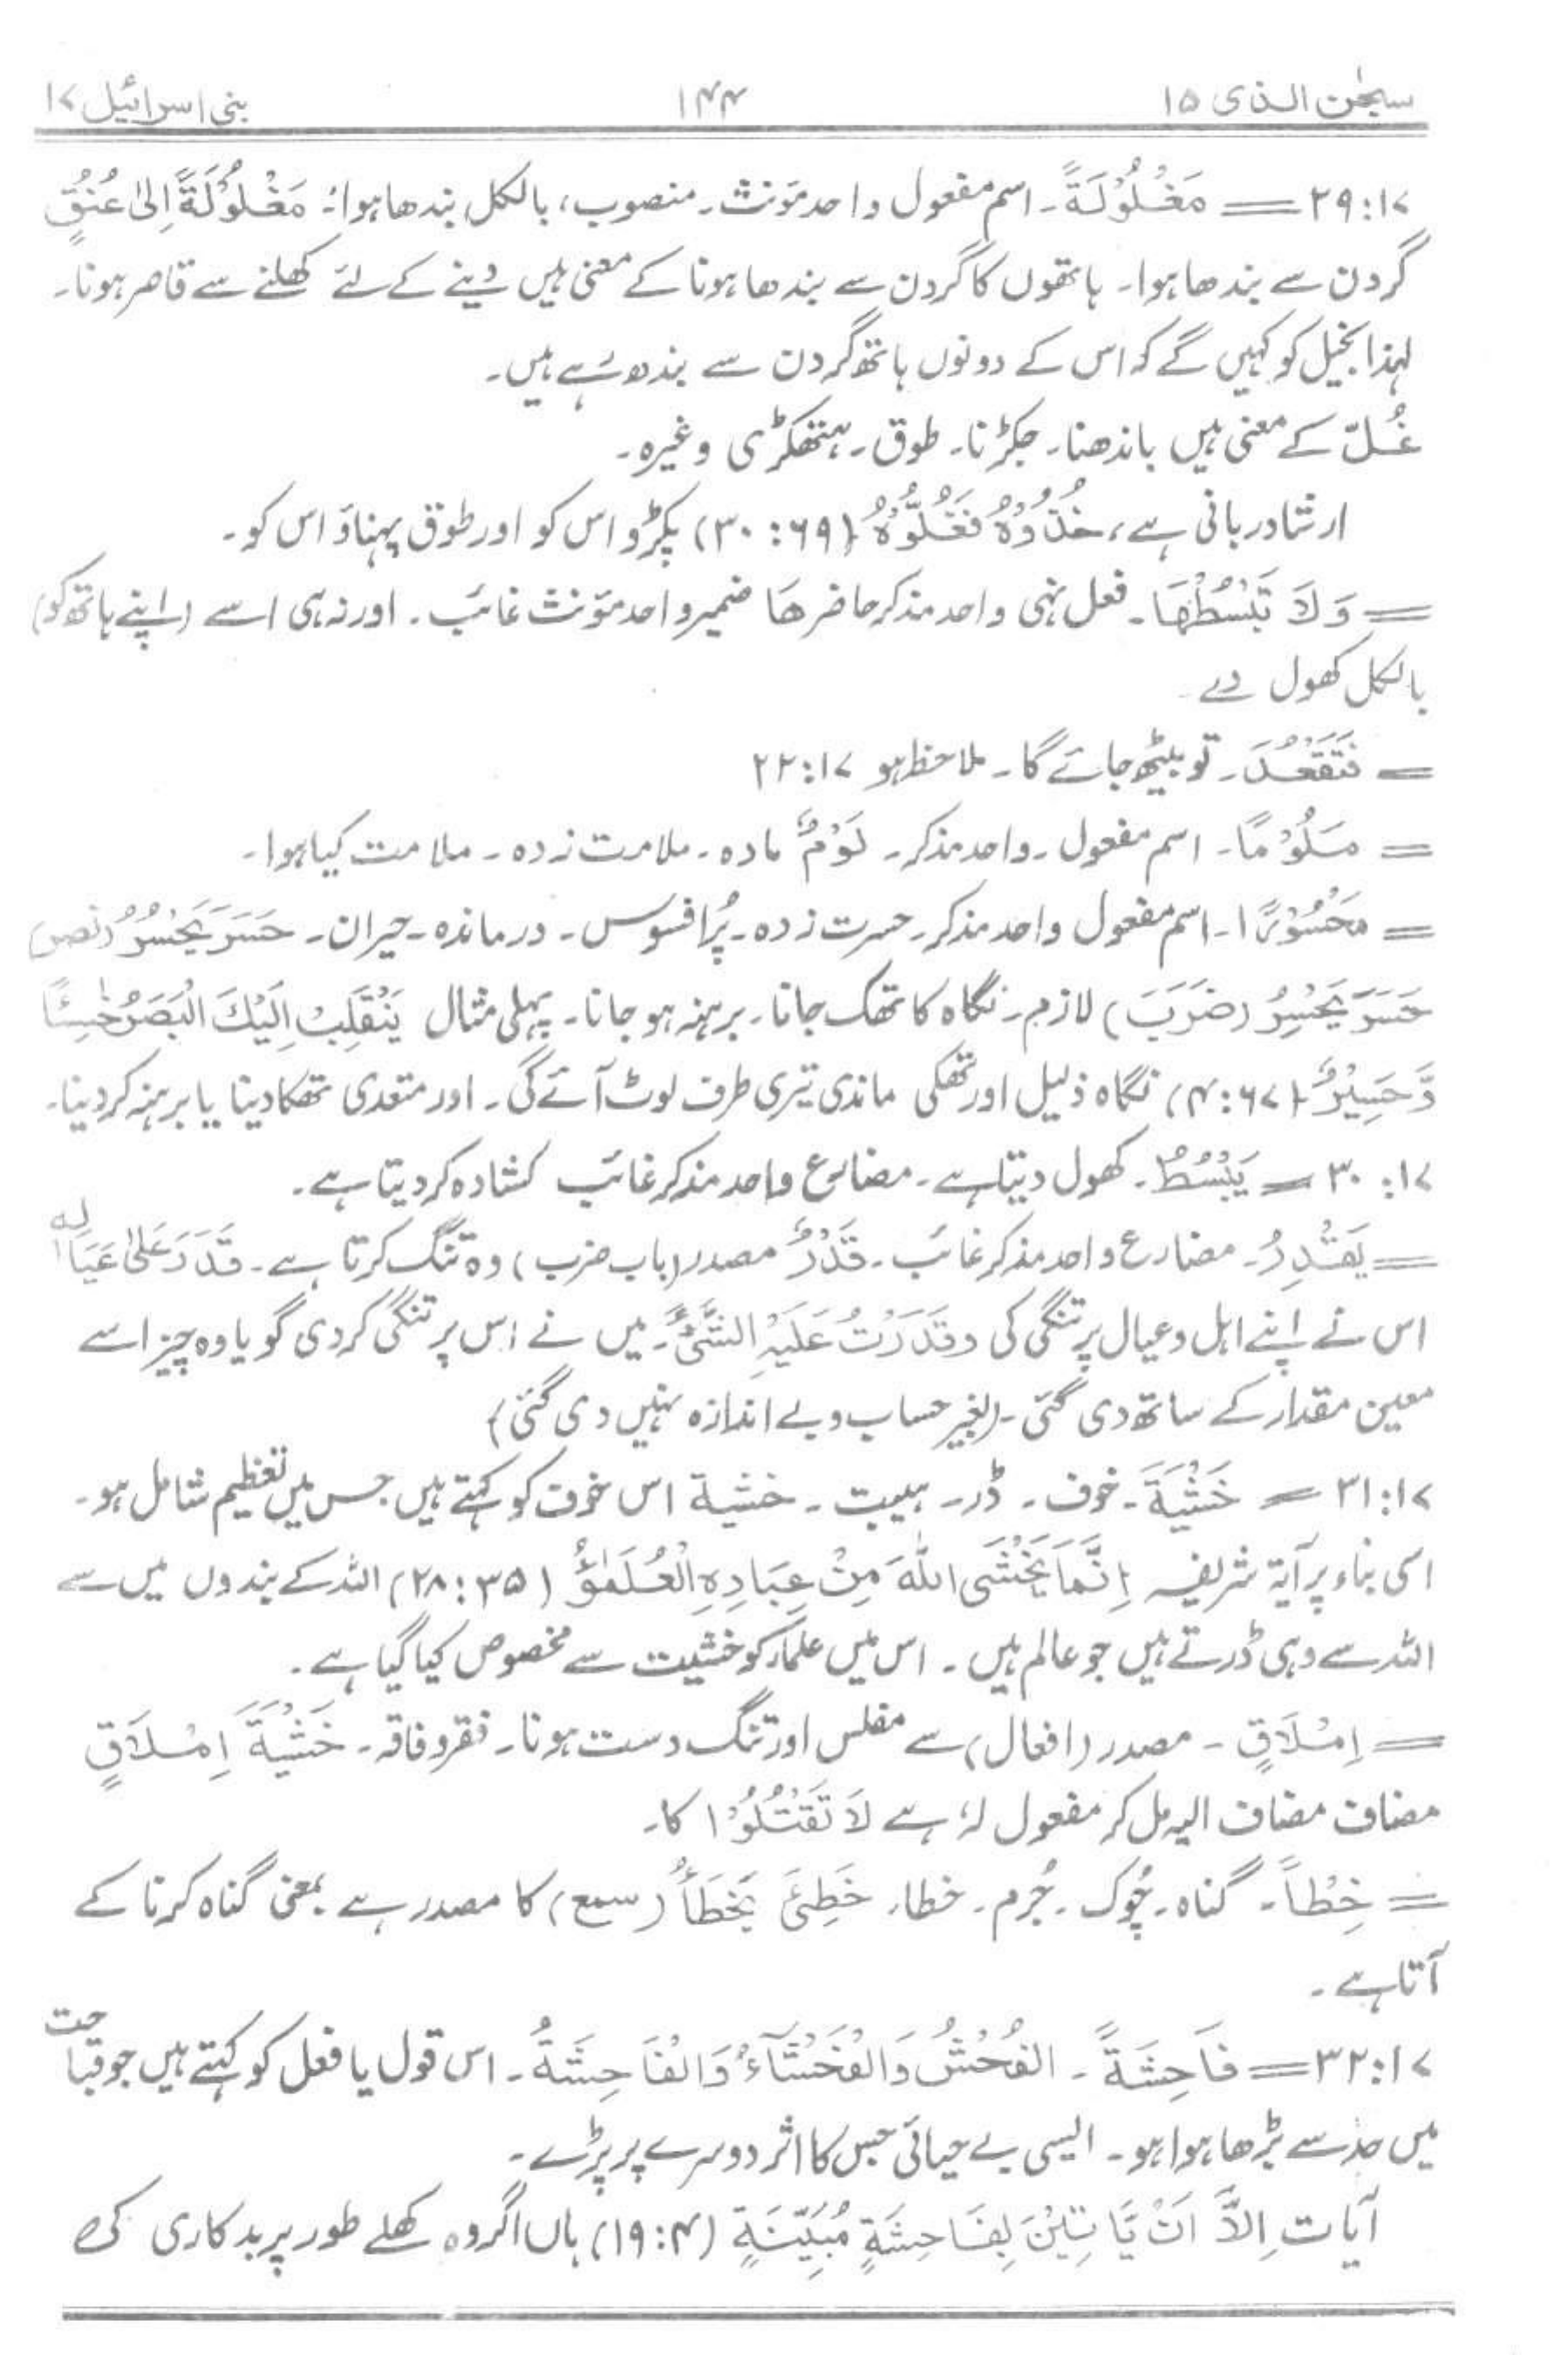 سبحٰن الذی ۱۵ ۱۴۴ بنی اسرائیل ۱۷
۱۷:۲۹ = مَغْلُوْلَۃً۔ اسم مفعول واحد مؤنث۔ منصوب، بالکل بندھا ہوا: مَغْلُوْلَۃً اِلیٰ عُنُقٍ
گردن سے بندھا ہوا۔ ہاتھوں کا گردن سے بندھا ہونا کے معنی ہیں دینے کے لئے کھلنے سے قاصر ہونا۔
لہذا بخیل کو کہیں گے کہ اس کے دونوں ہاتھ گردن سے بندھے ہیں۔
غُلّ کے معنی ہیں باندھنا۔ جکڑنا۔ طوق۔ ہتھکڑی وغیرہ۔
ارشاد ربانی ہے، خُذُوْہُ فَغُلُّوْہُ (۶۹: ۳۰) پکڑو اس کو اور طوق پہناؤ اس کو۔
= وَلَا تَبْسُطْھَا۔ فعل نہی واحد مذکر حاضر ھَا ضمیر واحد مؤنث غائب۔ اور نہ ہی اسے (اپنے ہاتھ کو)
بالکل کھول دے۔
= فَتَقْعُدَ۔ تو بیٹھ جائے گا۔ ملاحظہ ہو ۱۷:۲۲
= مَلُوْمًا۔ اسم مفعول۔ واحد مذکر۔ لَوْمٌ مادہ۔ ملامت زدہ۔ ملامت کیا ہوا۔
= مَحْسُوْرًا۔ اسم مفعول واحد مذکر۔ حسرت زدہ۔ پُر افسوس۔ درماندہ۔ حیران۔ حَسَرَ یَحْسُرُ (نصر)
حَسَرَ یَحْسِرُ (ضَرَبَ) لازم۔ نگاہ کا تھک جانا۔ برہنہ ہو جانا۔ پہلی مثال یَنْقَلِبْ اِلَیْکَ الْبَصَرُ خَاسِئًا
وَّ حَسِیْرٌ (۶۷:۴) نگاہ ذلیل اور تھکی ماندی تیری طرف لوٹ آئے گی۔ اور متعدی تھکا دینا یا برہنہ کر دینا۔
۱۷: ۳۰ = یَبْسُطُ۔ کھول دیتا ہے۔ مضارع واحد مذکر غائب کشادہ کر دیتا ہے۔
= یَقْدِرُ۔ مضارع واحد مذکر غائب۔ قَدْرٌ مصدر (باب ضرب) وہ تنگ کرتا ہے۔ قَدَرَ عَلیٰ عَیَالِہٖ
اس نے اپنے اہل و عیال پر تنگی کی وقَدَرْتُ عَلَیْہِ الشَّیْءَ۔ میں نے اس پر تنگی کر دی گویا وہ چیز اسے
معین مقدار کے ساتھ دی گئی۔ (بغیر حساب و بے اندازہ نہیں دی گئی)
۱۷:۳۱ = خَشْیَۃَ۔ خوف۔ ڈر۔ ہیبت۔ خشیۃ اس خوف کو کہتے ہیں جس میں تعظیم شامل ہو۔
اسی بناء پر آیۃ شریفہ اِنَّمَا یَخْشَی اللّٰہَ مِنْ عِبَادِہِ الْعُلَمٰٓؤُ (۳۵: ۲۸) اللہ کے بندوں میں سے
اللہ سے وہی ڈرتے ہیں جو عالم ہیں۔ اس میں علماء کو خشیت سے مخصوص کیا گیا ہے۔
= اِمْلَاقٍ۔ مصدر (افعال) سے مفلس اور تنگ دست ہونا۔ فقر و فاقہ۔ خَشْیَۃَ اِمْلَاقٍ
مضاف مضاف الیہ مل کر مفعول لہٗ ہے لَا تَقْتُلُوْا کا۔
= خِطْأً۔ گناہ۔ چُوک۔ جُرم۔ خطاء۔ خَطِئَ یَخْطَأُ (سمع) کا مصدر ہے بمعنی گناہ کرنا کے
آتا ہے۔
۱۷:۳۲ = فَاحِشَۃً۔ الفُحْشُ وَالفَحْشَآءُ وَالْفَاحِشَۃُ۔ اس قول یا فعل کو کہتے ہیں جو قباحت
میں حد سے بڑھا ہوا ہو۔ ایسی بے حیائی جس کا اثر دوسرے پر پڑے۔
آیات اِلَّآ اَنْ یَّاتِیْنَ بِفَاحِشَۃٍ مُبَیِّنَۃٍ (۴: ۱۹) ہاں اگر وہ کھلے طور پر بدکاری کی